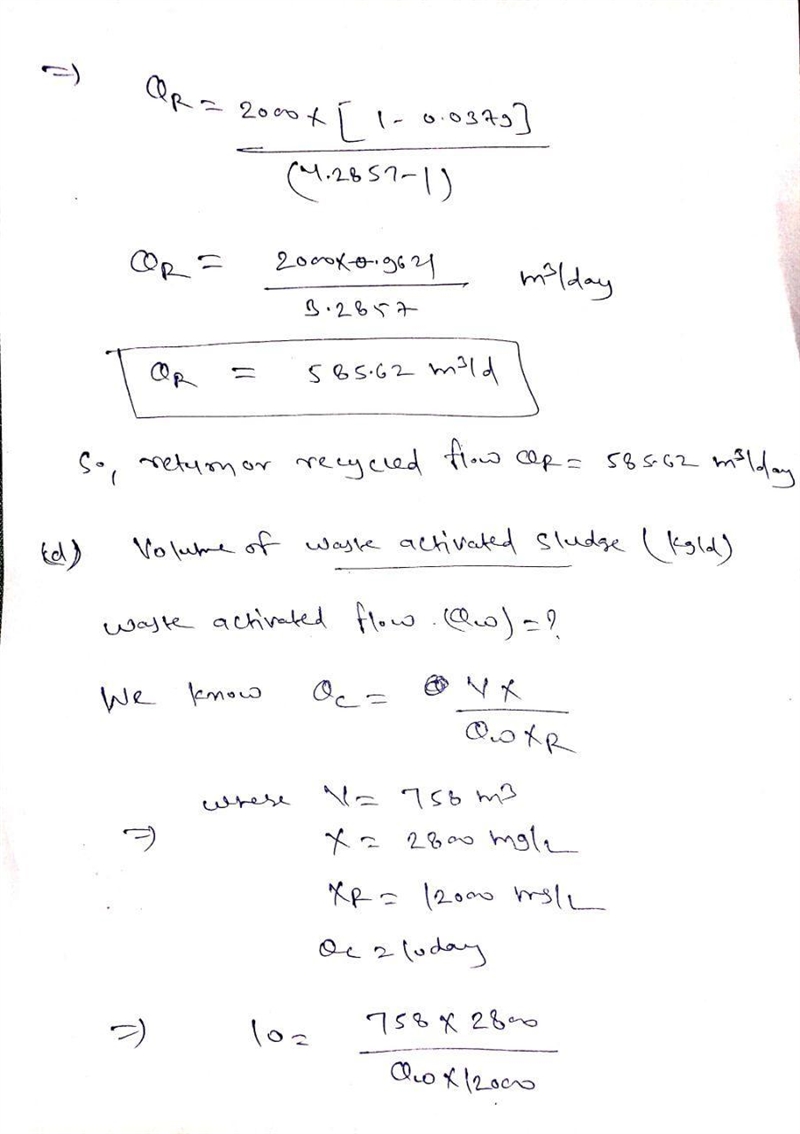 =) QR = 2000 x [1 - 0.0379]
(4.2857-1)
QR = 2000x0.9621 m3/day
3.2857
QR = 585.62 m3/d
So, return or recycled flow QR = 585.62 m3/day
(d) Volume of waste activated sludge (kg/d)
waste activated flow. (Qw) = ?
We know θc = VX
QwXR
where V = 758 m3
=) X = 2800 mg/L
XR = 12000 mg/L
θc = 10day
=) 10 = 758 X 2800
Qw X 12000